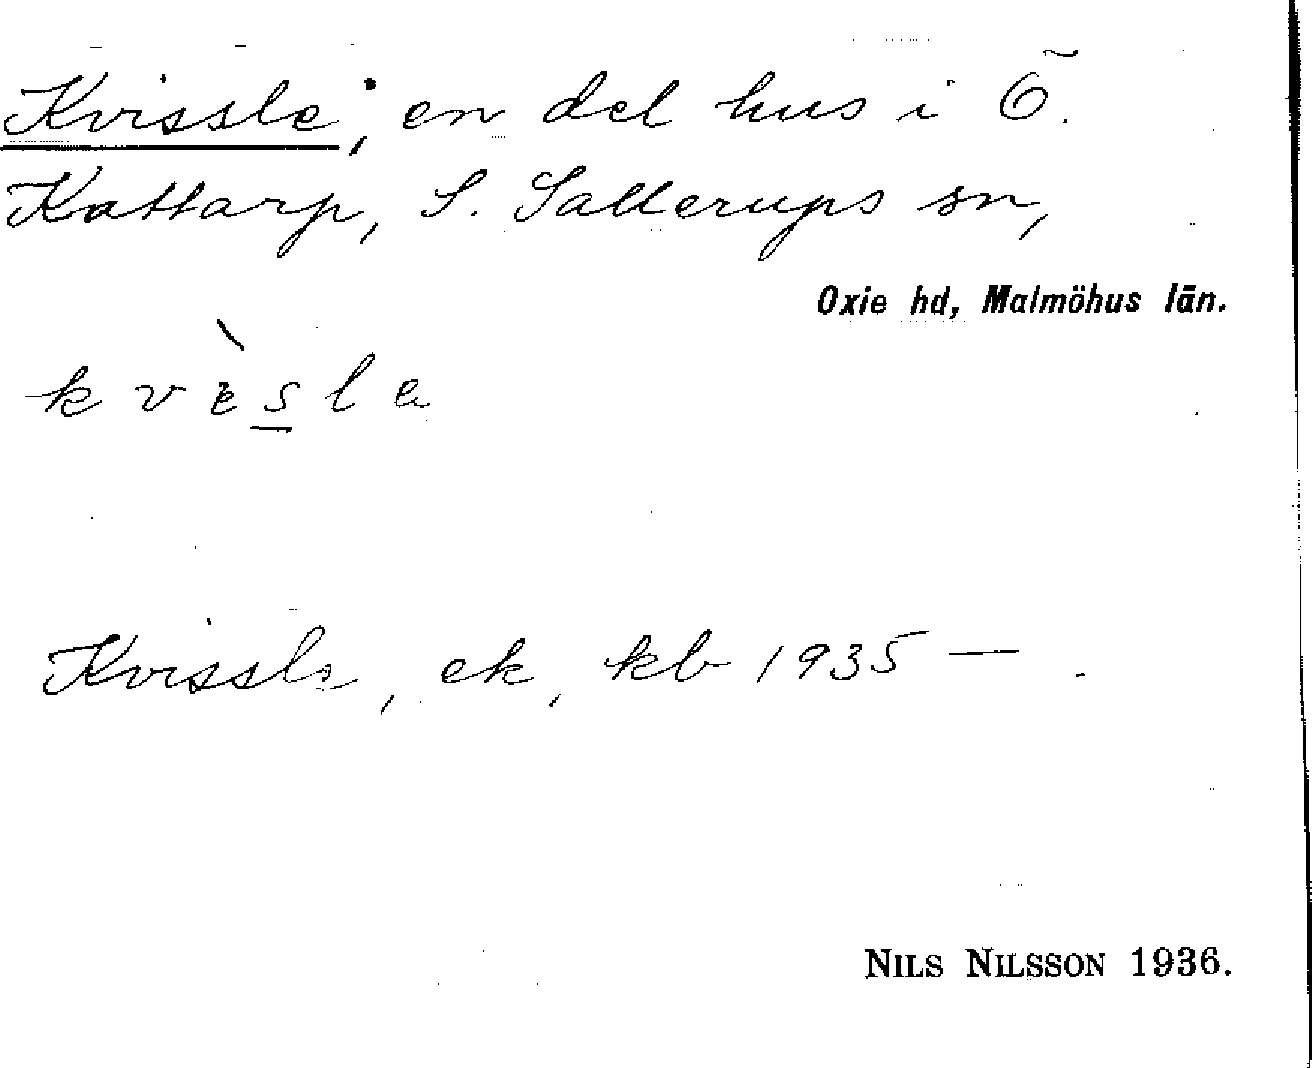 Kvissle, en del hus i Ö.
Kattarp, S. Sallerups sn,
Oxie hd, Malmöhus län.
kvèsle
Kvissle, ek, kb 1935 — .
NILS NILSSON 1936.